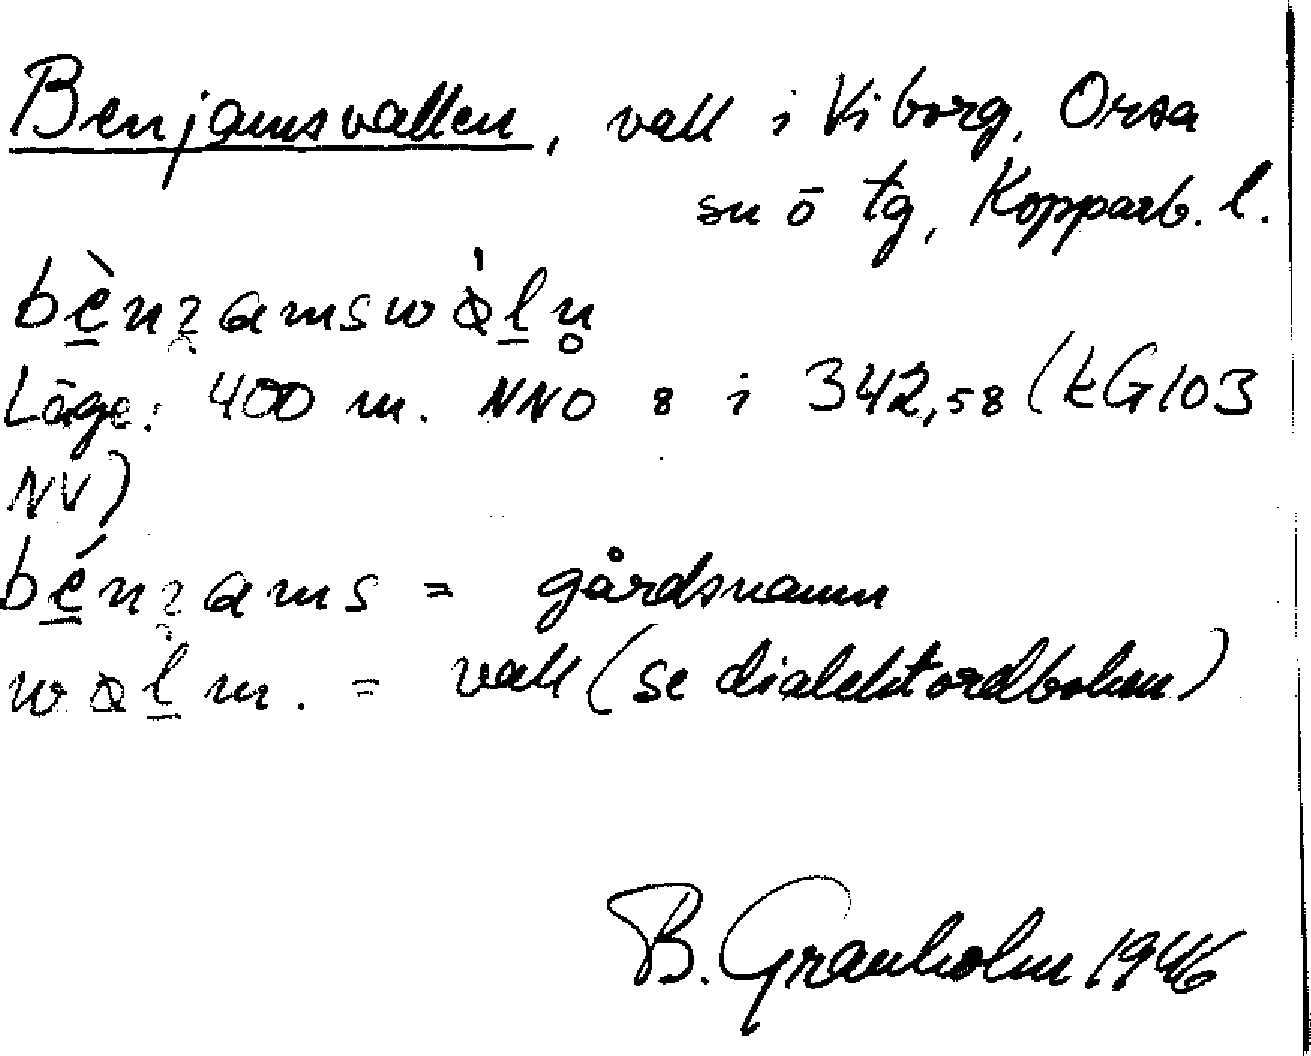 Benjamsvallen, vall i Viborg, Orsa
sn ö tg, Kopparb. l.
Läge: 400 m. NNO 8 i 342,58 (kG103
NV)
= gårdsnamn
m. = vall (se dialektordboken)
B. Granholm 1946